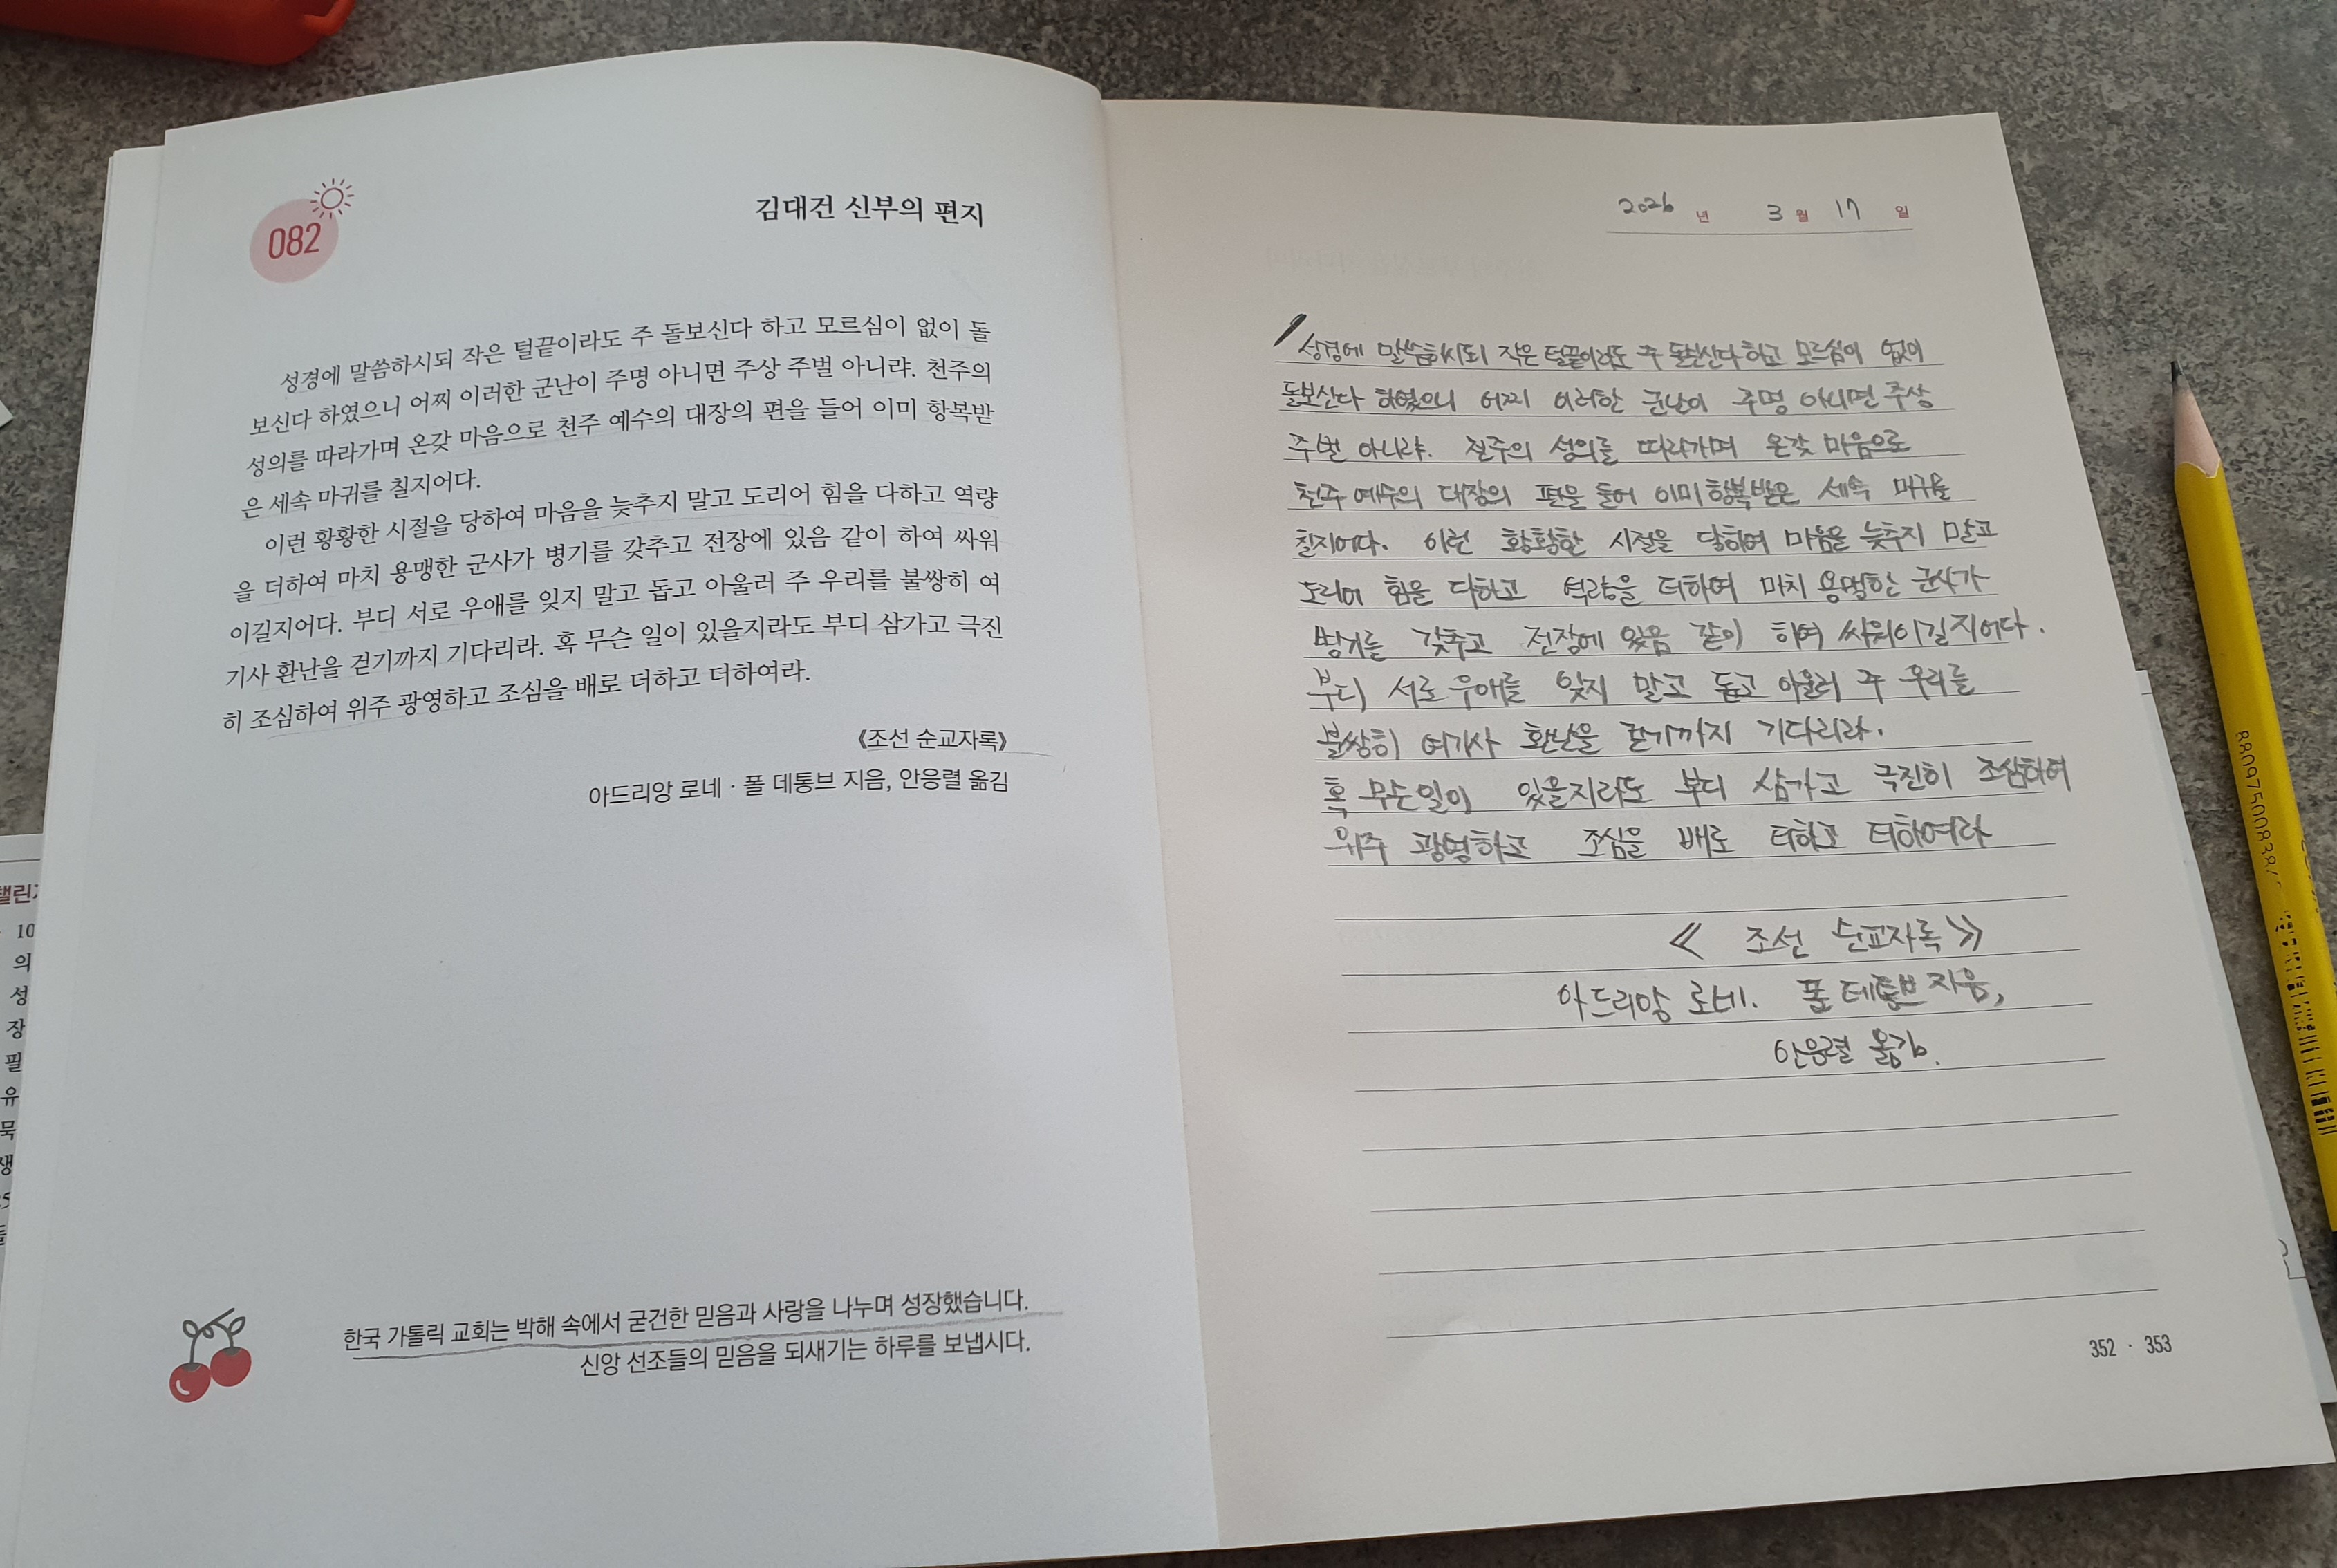 082
김대건 신부의 편지
성경에 말씀하시되 작은 털끝이라도 주 돌보신다 하고 모르심이 없이 돌
보신다 하였으니 어찌 이러한 군난이 주명 아니면 주상 주벌 아니랴. 천주의
성의를 따라가며 온갖 마음으로 천주 예수의 대장의 편을 들어 이미 항복받
은 세속 마귀를 칠지어다.
이런 황황한 시절을 당하여 마음을 늦추지 말고 도리어 힘을 다하고 역량
을 더하여 마치 용맹한 군사가 병기를 갖추고 전장에 있음 같이 하여 싸워
이길지어다. 부디 서로 우애를 잊지 말고 돕고 아울러 주 우리를 불쌍히 여
기사 환난을 걷기까지 기다리라. 혹 무슨 일이 있을지라도 부디 삼가고 극진
히 조심하여 위주 광영하고 조심을 배로 더하고 더하여라.
《조선 순교자록》
아드리앙 로네 · 폴 데통브 지음, 안응렬 옮김
한국 가톨릭 교회는 박해 속에서 굳건한 믿음과 사랑을 나누며 성장했습니다.
신앙 선조들의 믿음을 되새기는 하루를 보냅시다.
2026 년 3 월 17 일
성경에 말씀하시되 작은 털끝이라도 주 돌보신다 하고 모르심이 없이
돌보신다 하였으니 어찌 이러한 군난이 주명 아니면 주상
주벌 아니랴. 천주의 성의를 따라가며 온갖 마음으로
천주 예수의 대장의 편을 들어 이미 항복받은 세속 마귀를
칠지어다. 이런 황황한 시절을 당하여 마음을 늦추지 말고
도리어 힘을 다하고 역량을 더하여 마치 용맹한 군사가
병기를 갖추고 전장에 있음 같이 하여 싸워이길지어다.
부디 서로 우애를 잊지 말고 돕고 아울러 주 우리를
불쌍히 여기사 환난을 걷기까지 기다리라.
혹 무슨일이 있을지라도 부디 삼가고 극진히 조심하여
위주 광영하고 조심을 배로 더하고 더하여라
《 조선 순교자록》
아드리앙 로네. 폴 데통브 지음,
안응렬 옮김.
352 · 353
챌린
10
의
성
장
필
유
묵
생